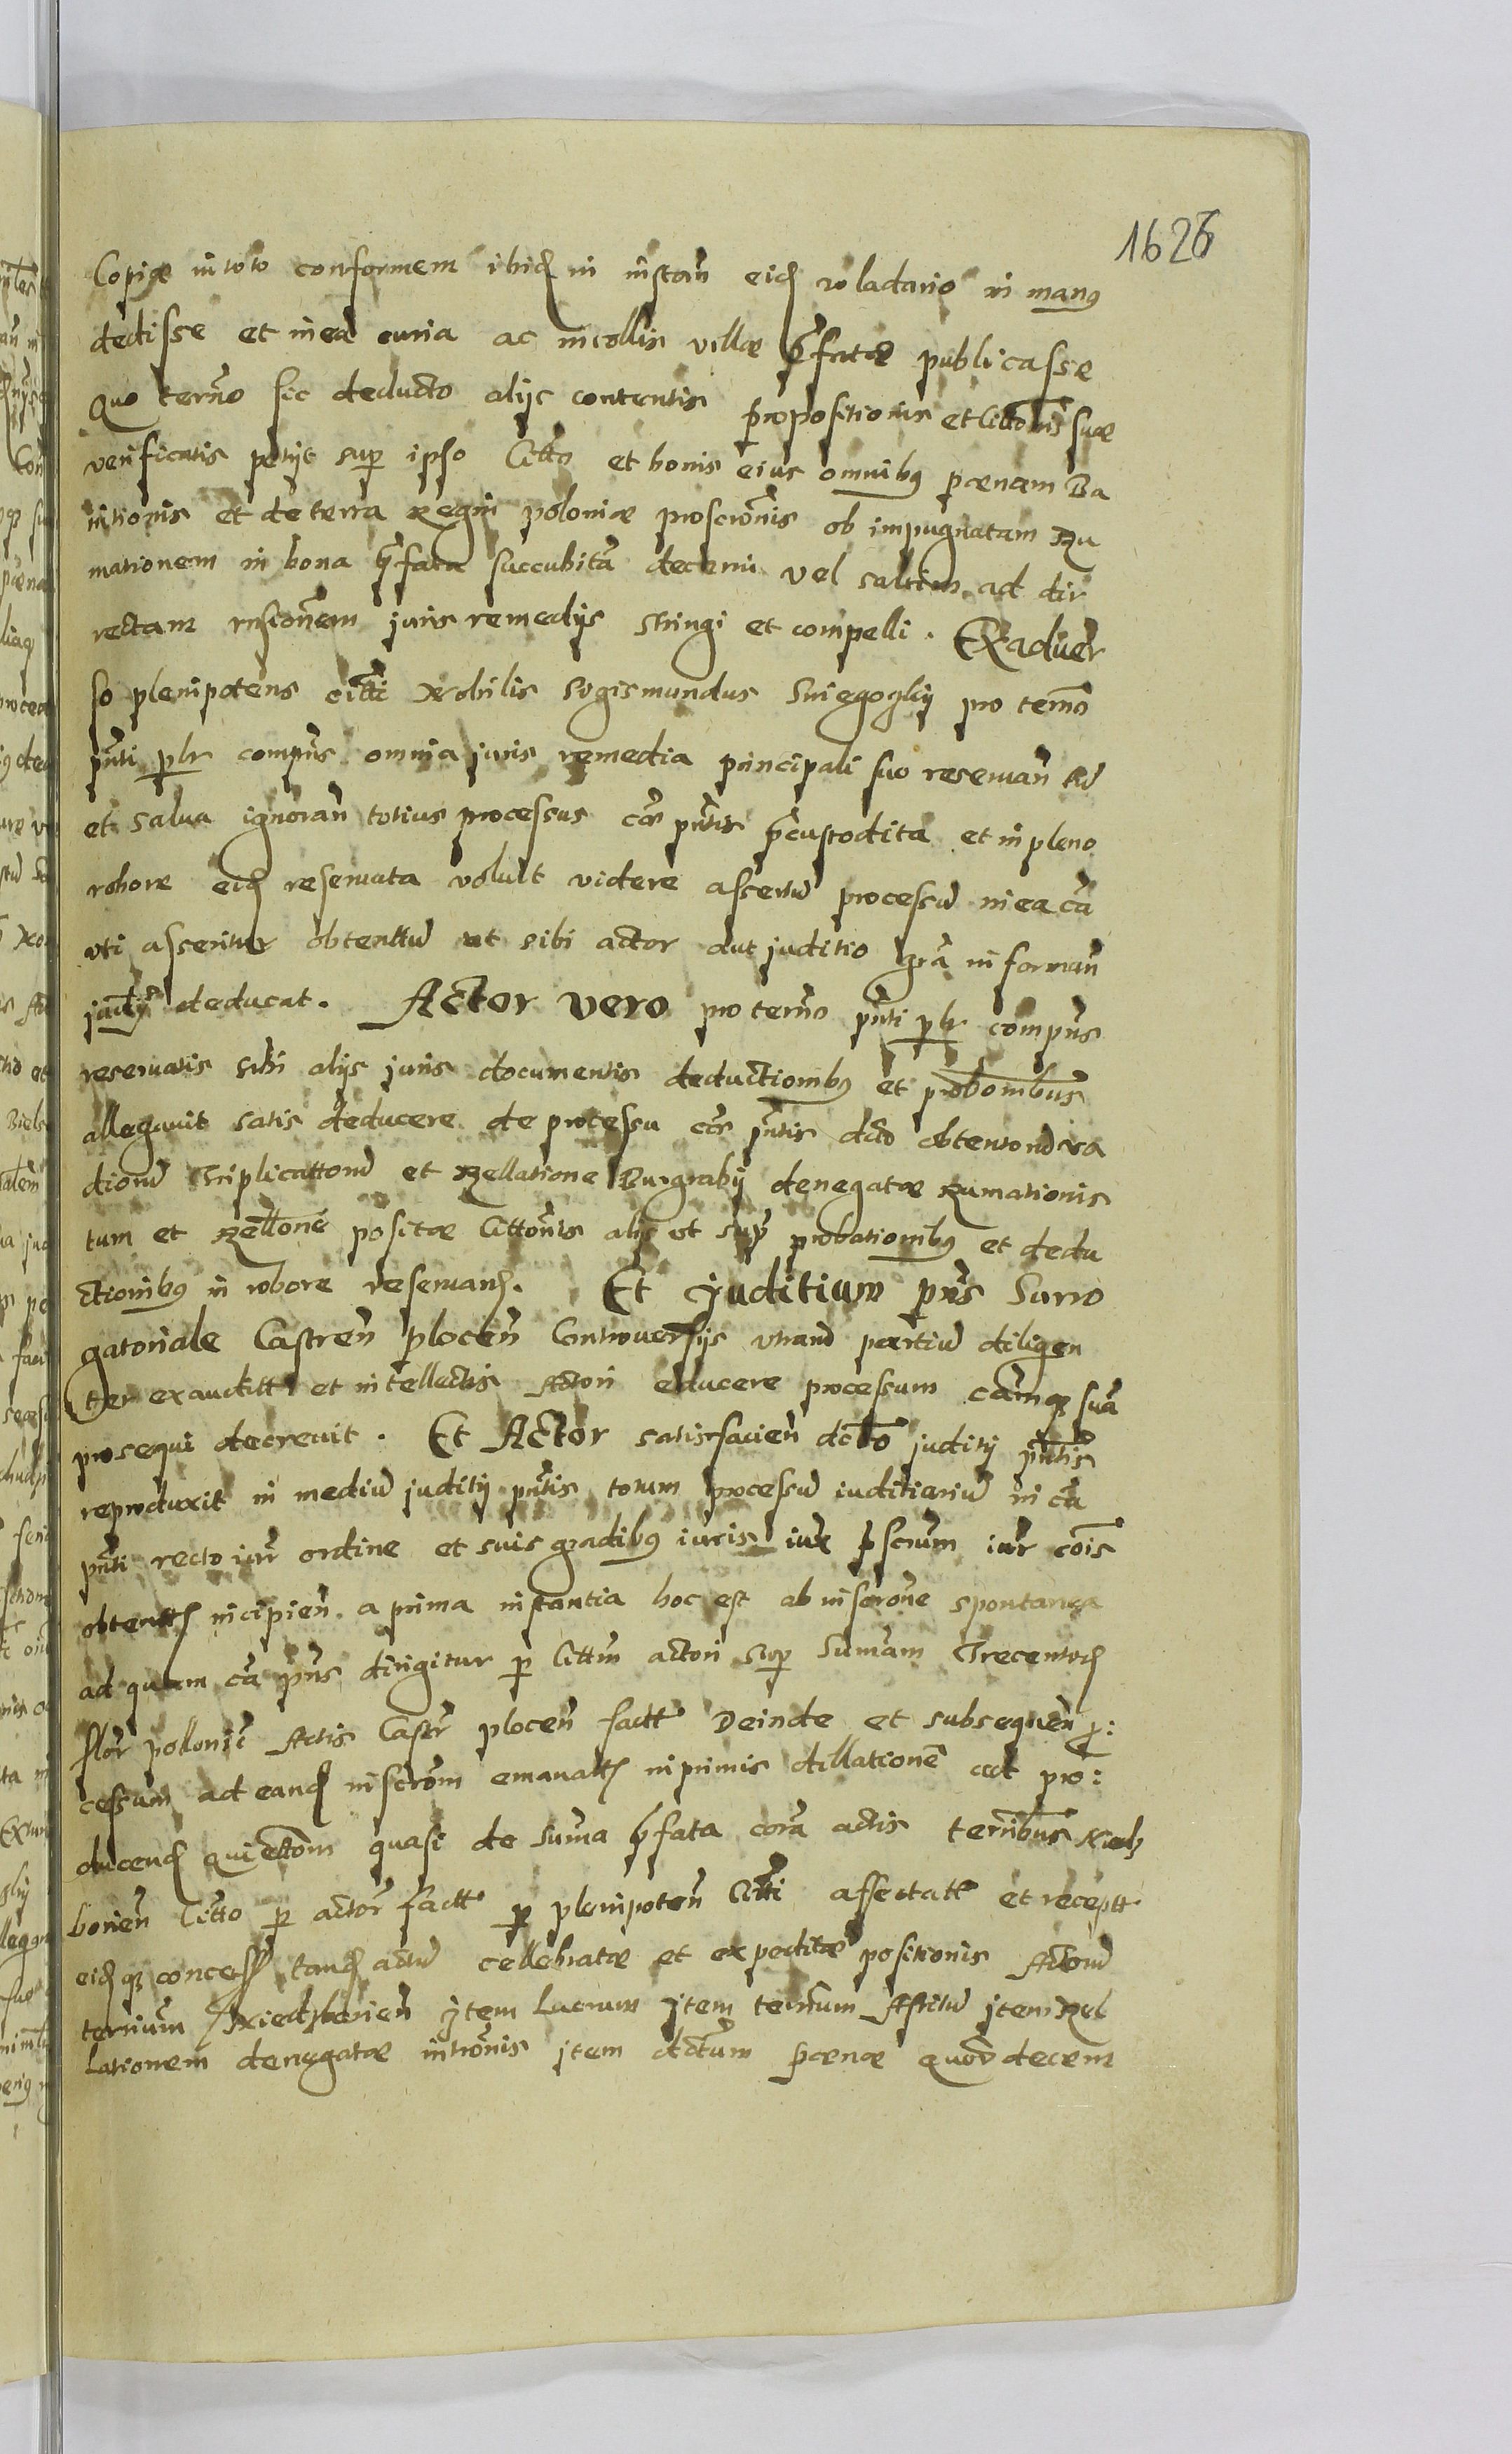 1626
Copiæ in toto conformem ibid in instan eid wladario in man9
dedisse et in ea curia ac in collis villæ pfatæ publicasse
Quo termo sic deducto alijs contentis propositionis et Cittonis suæ
verificatis petijt sup ipso Citto et bonis eius omnib9 pœnam Ba
nitionis et de terra Regni poloniæ proscronis ob impugnatam Ru
mationem in bona pfata succubita decerni vel saltim ad dir
rectam rnsionem juris remedijs stringi et compelli. Ex adver
so plenipotens citti Nobilis Sigismundus pro termo
pnti plr compns omnia juris remedia principali suo reseruan
et salua ignoran totius processus cor pntis pcustodita et in pleno
robore eid reseruata voluit videre assertu processu in ea ca
vti asseritur obtentu ut sibi actor aut juditio gra informan
judtij deducat. Actor vero pro termo pnti plr compns
reseruatis sibi alijs juris documentis deductionib9 et probonibus
allegauit satis deducere de processu cor pntis dcto obtento
diond Triplicattond et Rellatione Burgrabij denegatæ Rumationis
tum et Rellone positæ Cittonis alijs ut sup probationib9 et dedu
ctionib9 in robore reseruand. Et Juditium pns Surro
gatoriale Castren plocen Controuersijs vtrand partiu diligen
ter exauditt et intellectis Actori educere processum camq sua
prosequi decreuit. Et Actor satisfacien dcto juditij pntis
reproduxit in mediu juditij pntis totum processu iuditiariu in ca
pnti recto iur ordine et suis gradib9 iuris iux pscrum iur cois
obtentt incipien a prima instantia hoc est ab inscrone spontanea
ad quam ca pns dirigitur p Cittm actori sup Sumam Trecentord
flor polonic Actis Castr plocen factt Deinde et subsequen p:
cessum ad eand inscrom emanatt in primis dillationem ad pro:
ducend quiettom quasi de suma pfata cora actis ternibus
bonen Citto p actor factt p plenipoten Citti affectatt et receptt
eidq concess tand actu cellebratæ et expeditæ positionis Actoru
terrium item Lucrum item ternum Astitu item Rel
lationem denegatæ intronis item dctum pœnæ quod decem